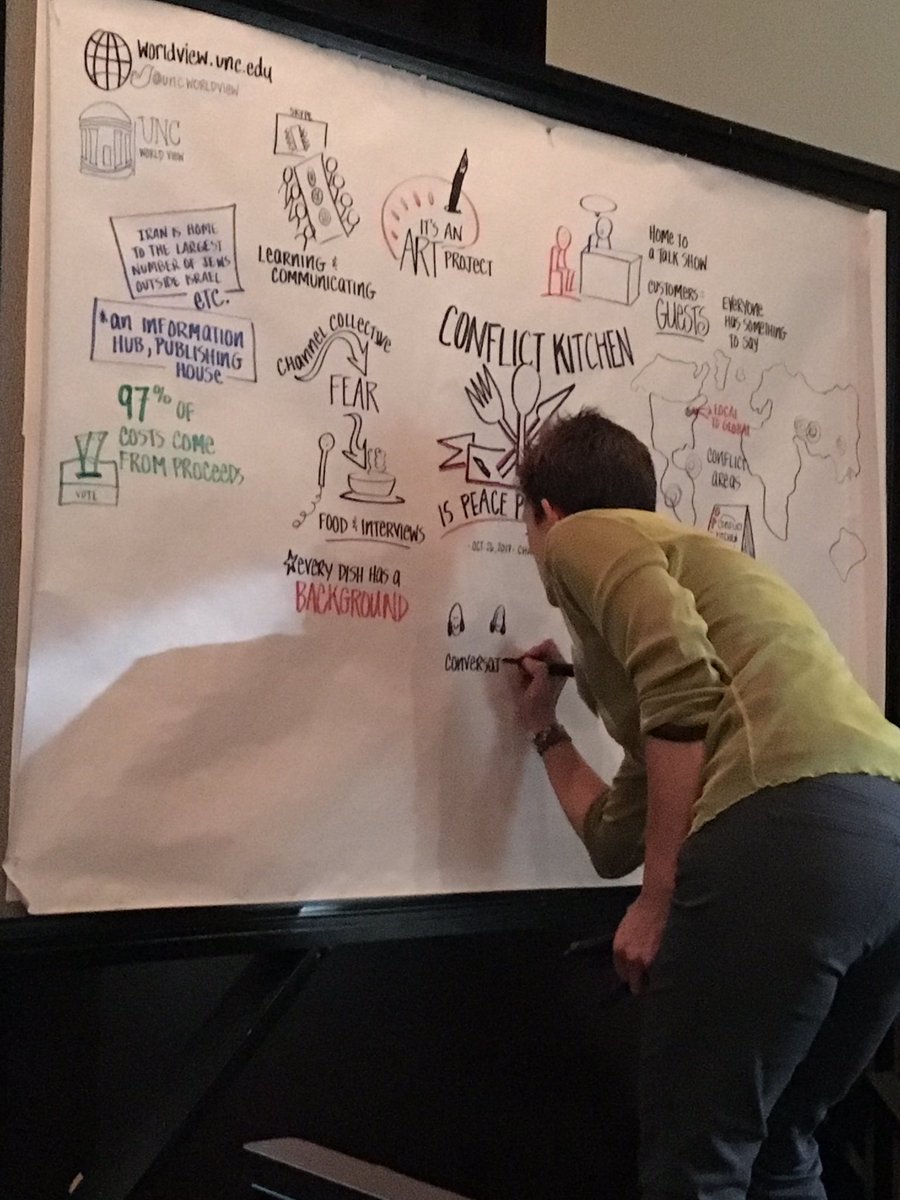 worldview.unc.edu
@UNC WORLDVIEW
UNC
WORLD VIEW
SKYPE
LEARNING &
COMMUNICATING
IT'S AN
ART PROJECT
HOME TO
A TALK SHOW
CUSTOMERS =
GUESTS
EVERYONE
HAS SOMETHING
TO SAY
IRAN IS HOME
TO THE LARGEST
NUMBER OF JEWS
OUTSIDE ISRAEL
ETC.
*AN INFORMATION
HUB, PUBLISHING
HOUSE
97% OF
COSTS COME
FROM PROCEEDS
VOTE
CHANNEL COLLECTIVE
FEAR
FOOD & INTERVIEWS
EVERY DISH HAS A
BACKGROUND
CONFLICT KITCHEN
IS PEACE P
OCT 26, 2017 - CHA
LOCAL
TO GLOBAL
CONFLICT
AREAS
CONFLICT
KITCHEN
CONVERSAT